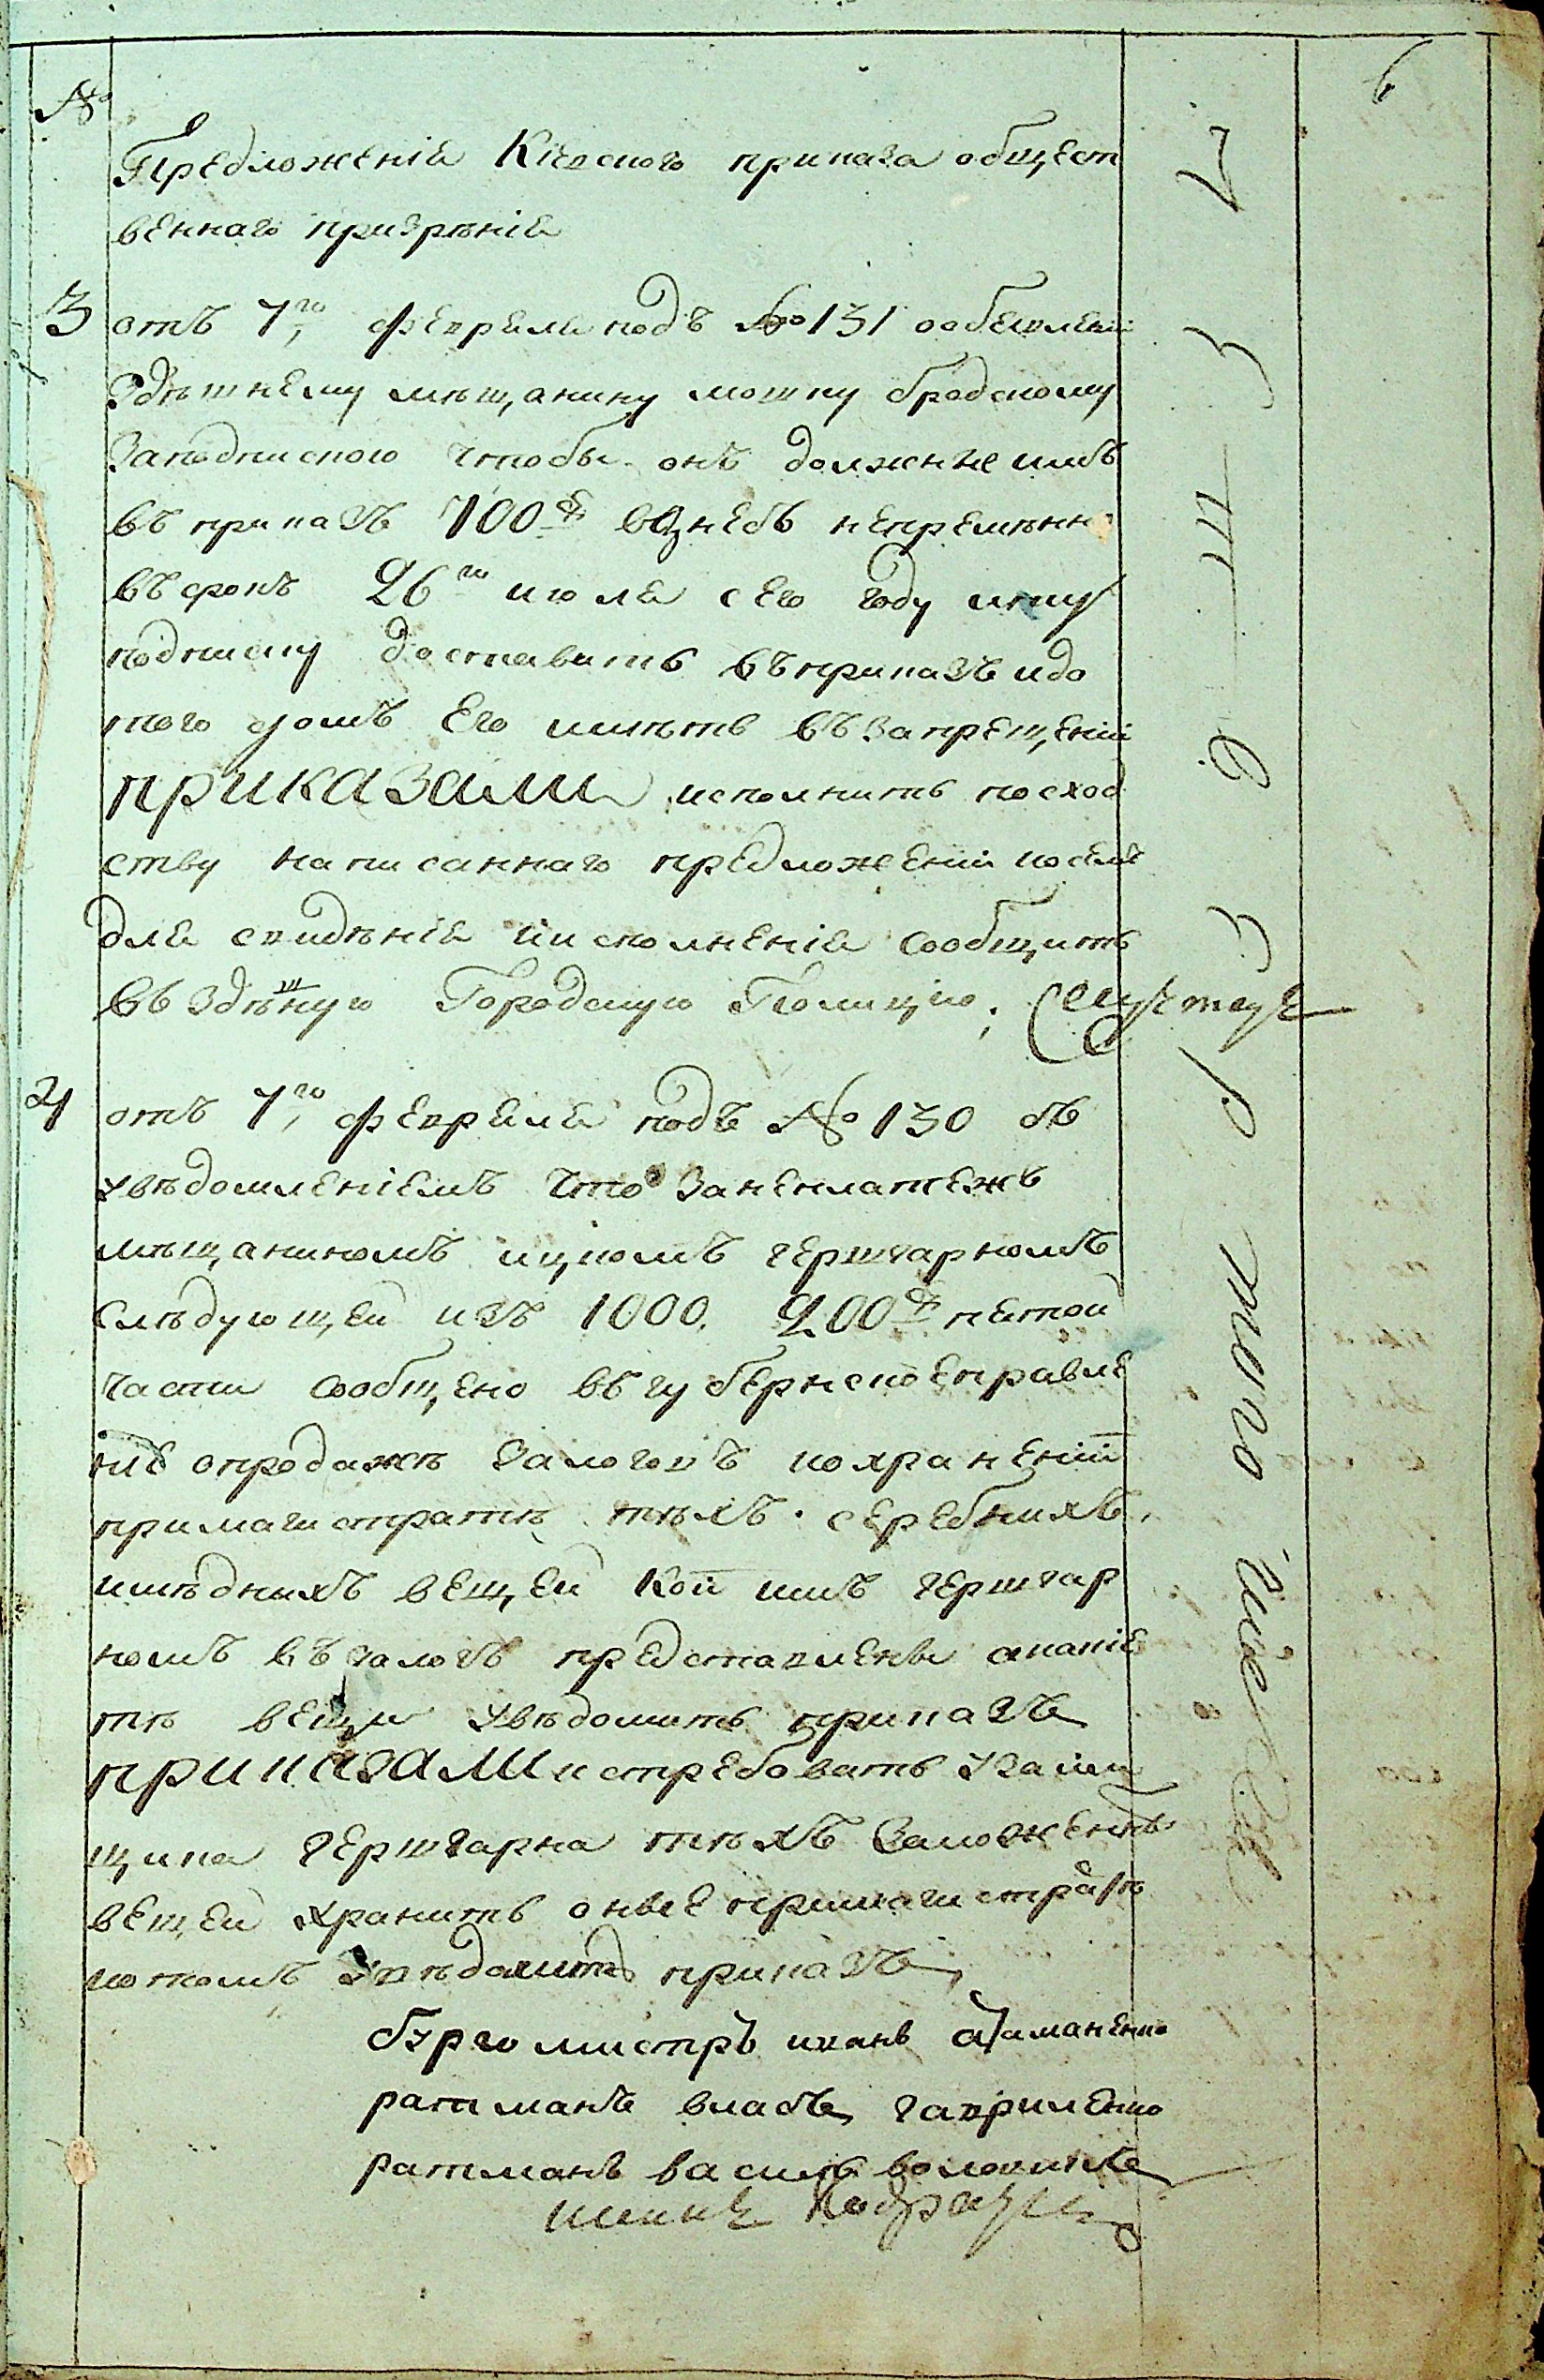 №
6
Предложенія Кіевского приказа общест
веннаго призрѣнія
3 отъ 7го февраля подъ № 131 о объявленіи
Здѣшнему мѣщанину мошку бродскому
Заподпискою чтобы онъ должніе имъ
въ приказъ 700 р взнесъ непремѣнно
въ срокъ 26го июля сего году и ту
подписку доставить въ приказъ и до
того домъ Его имѣть въ Запрещеніи
приказали исполнить по сход
ству написаннаго предложенія и о семъ
для свидѣнія и исполненія сообщить
въ Здѣшную Городскую Полицію.
4 отъ 7го февраля подъ № 130 съ
увѣдомленіемъ что За неплатежъ
мѣщаниномъ ицкомъ гершгарномъ
Слѣдующей изъ 1000. 200 р пятой
части сообщено въ губернское правле
ніе о продажѣ Залоговъ и о храненіи
при магистратѣ тѣхъ серебнихъ
и мѣдныхъ вещей Кои имъ гершгар
номъ въ залогъ представлены а какіе
тѣ вещи увѣдомить приказъ
приказали истребовать у
ицка гершгарна тѣхъ Заложенныхъ
вещей хранить оные при магистратѣ
и о томъ Увѣдомить приказъ
бургомистръ иванъ атаманенко
ратманъ власъ гавриленко
ратманъ василь